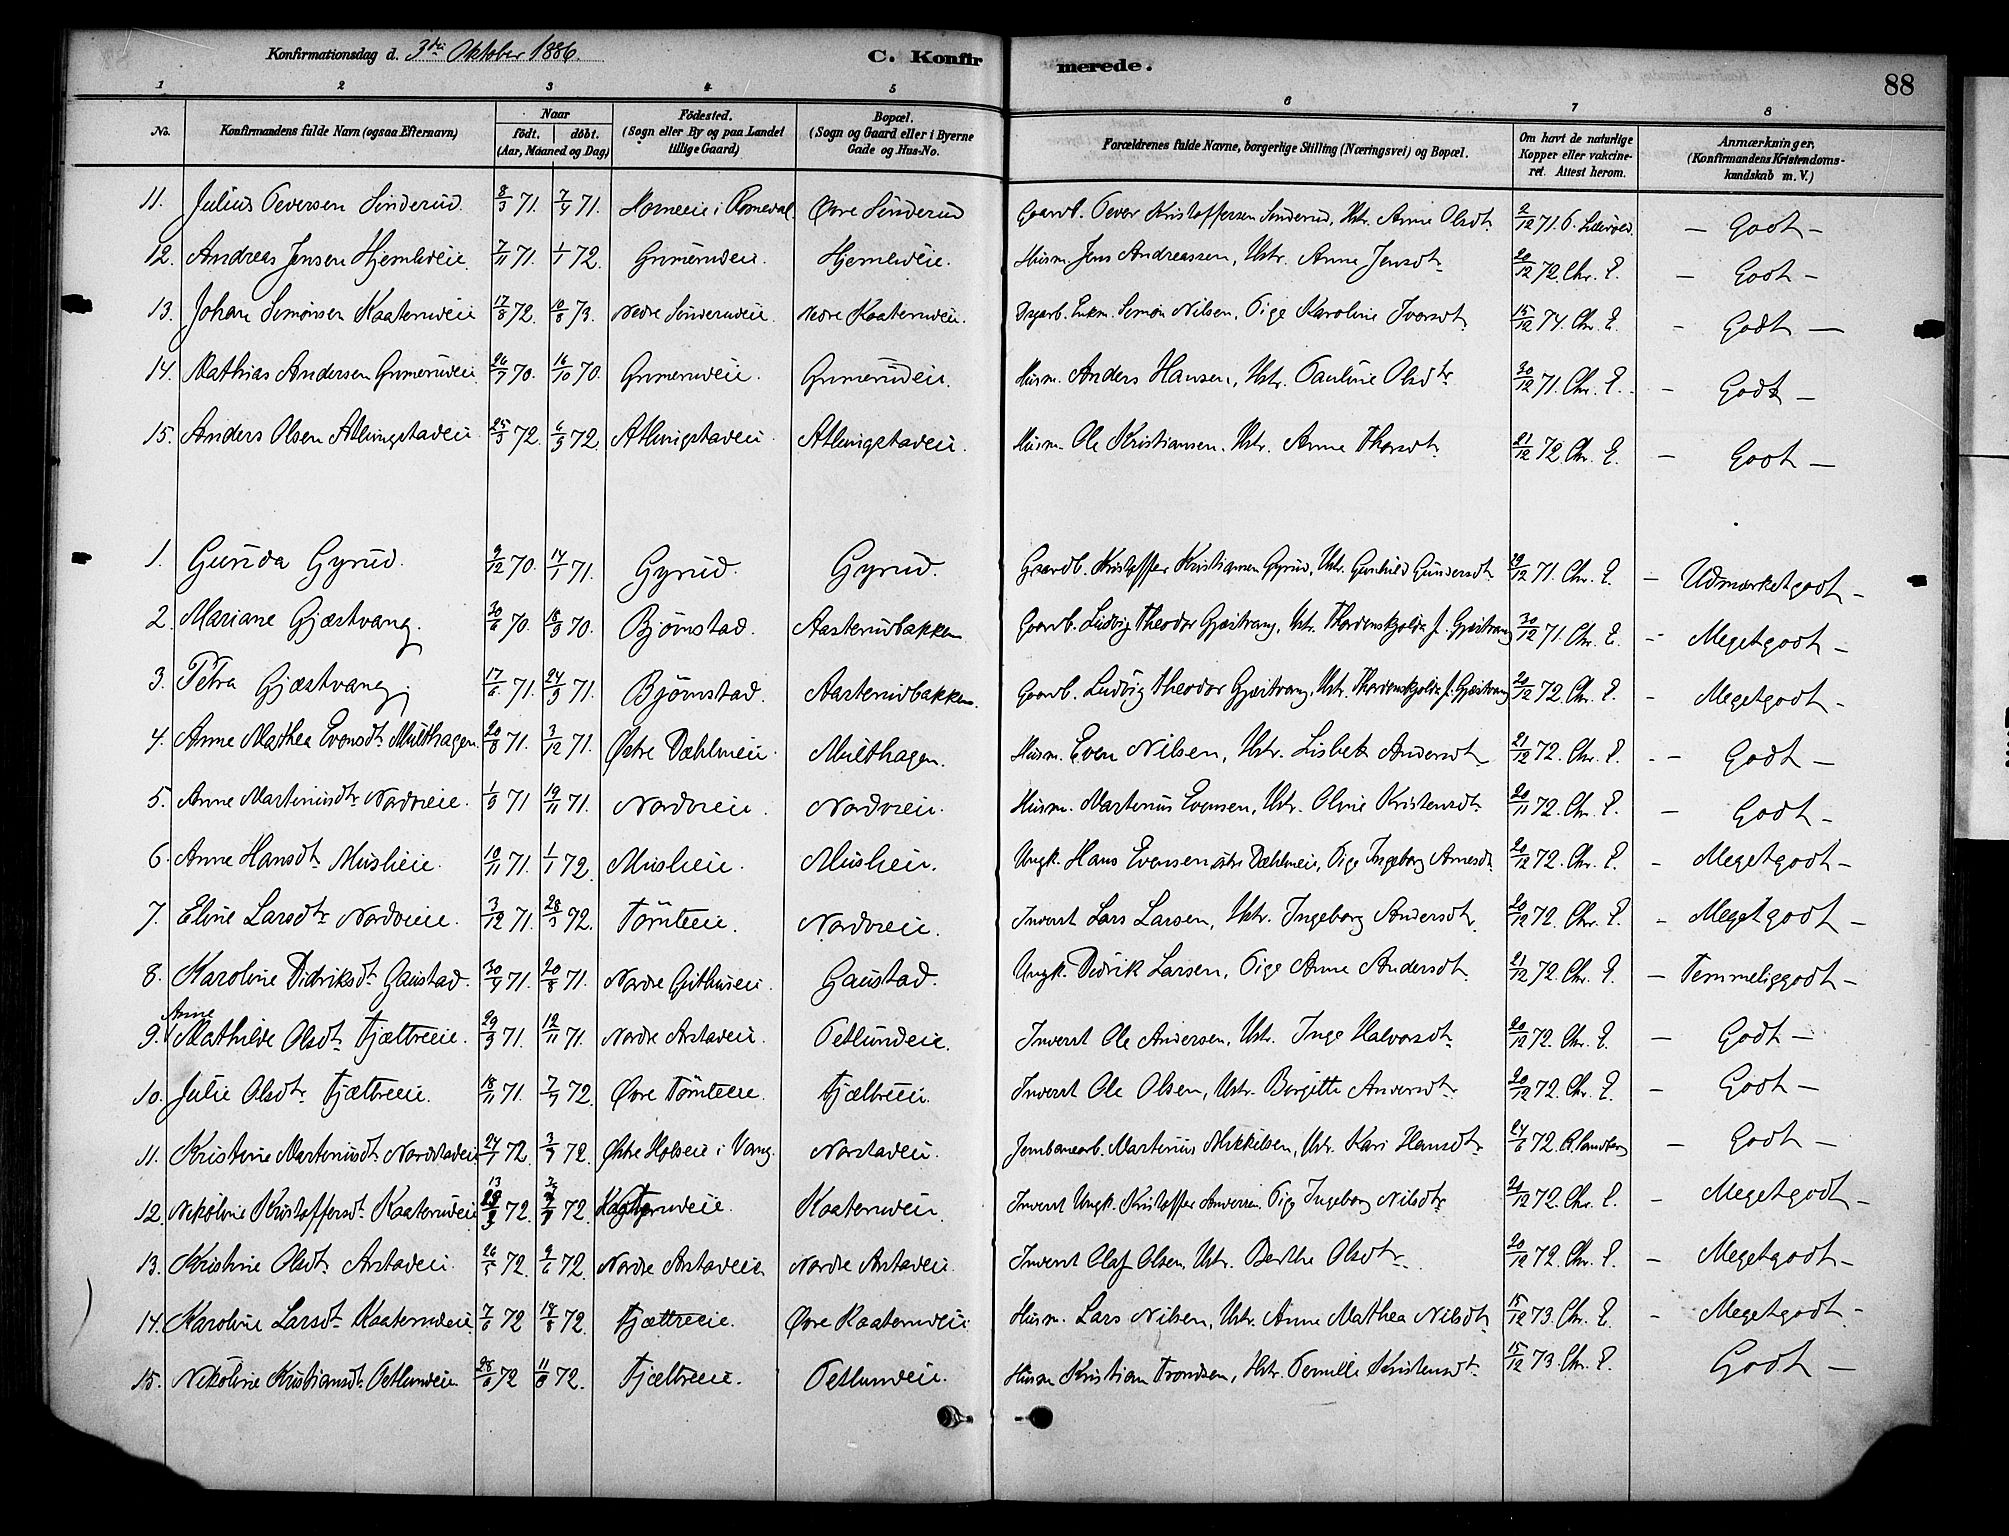 Konfirmationsdag d. 3die Oktober 1886.
C. Konfirmerede.
88
1 2 3 4 5 6 7 8
No. Konfirmandens fulde Navn (ogsaa Efternavn) Naar födt. döbt. (Aar, Maaned og Dag) Födested. (Sogn eller By og paa Landet tillige Gaard) Bopæl. (Sogn og Gaard eller i Byerne Gade og Hus-No. Forældrenes fulde Navne, borgerlige Stilling (Næringsvei) og Bopæl. Om havt de naturlige Kopper eller vakcineret. Attest herom. Anmærkninger, (Konfirmandens Kristendomskundskab m. V.)
11. Julius Peversen Sönderud 8/3 71. 7/4 71. i Romedal Øvre Sönderud Gaardb. Peder Kristoffersen Sönderud, Hstr. Anne Olsdtr. 2/12 71. – Godt –
12. Andreas Jensen Hjemliveie 7/11 71. 1/1 72. Grimerudeie. Hjemliveie. Husm. Jens Andreassen, Hstr. Anne Jensdtr. 20/12 72. Chr. E. – Godt –
13. Johan Simonsen Kaaterudeie 17/8 72. 10/8 73. Nedre Sönderudeie Nedre Kaaterudeie. Enkm. Simon Nilsen, Pige Karoline Iversdtr. 15/12 74. Chr. E. – Godt –
14. Mathias Andersen Grimerudeie 26/7 70. 16/10 70. Grimerudeie. Grimerudeie. Husm. Anders Hansen, Hstr. Pauline Olsdtr. 30/12 71. Chr. E. – Godt –
15. Anders Olsen Atlungstadeie 25/3 72. 6/5 72. Atlungstadeie. Atlungstadeie. Husm. Ole Kristiansen, Hstr. Anne Thorsdtr. 21/12 72. Chr. E. – Godt –
1. Gurida Gyrud. 9/12 70. 14/1 71. Gyrud. Gyrud. Gaardb. Kristoffer Kristiansen Gyrud, Hstr. Gunhild Gundersdtr. 20/12 71. Chr. E. – Udmærketgodt –
2. Mariane Gjæstvang. 30/6 70. 18/9 70. Bjørnstad. Aasterudbakken Gaardb. Ludvig Theodor Gjæstvang, Hstr. J. Gjæstvang 30/12 71. Chr. E. – Megetgodt –
3. Petra Gjæstvang. 17/6 71. 24/9 71. Bjørnstad. Aasterudbakken. Gaardb. Ludvig Theodor Gjæstvang, Hstr. J. Gjæstvang 20/12 72. Chr. E. – Megetgodt –
4. Anne Mathea Evensdtr. Multhagen. 20/8 71. 3/12 71. Østre Dæhlineie Multhagen. Husm. Even Nilsen, Hstr. Lisbet Andersdtr. 21/12 72. Chr. E. – Godt –
5. Anne Martiniusdtr. Nordvieie. 1/9 71 19/11 71. Nordvieie. Nordvieie. Husm. Martinius Evensen, Hstr. Oline Kristensdtr. 20/11 72. Chr. E. – Godt –
6. Anne Hansdtr. Muslieie. 10/11 71. 1/1 72. Muslieie. Muslieie. Ungk. Hans Evensen Dæhlineie, Pige Ingeborg Arnesdtr. 20/12 72. Chr. E. – Megetgodt –
7. Eline Larsdtr. Nordvieie. 3/12 71. 28/3 72. Törnteeie. Nordvieie. Inderst Lars Larsen, Hstr. Ingeborg Andersdtr. 20/12 72. Chr. E. – Megetgodt –
8. Karoline Didriksdtr. Gaustad. 30/4 71. 20/8 71. Nordre Guthuseie. Gaustad. Ungk. Didrik Larsen, Pige Anne Andersdtr. 21/12 72. Chr. E. – Temmeliggodt –
9. Anne Mathilde Olsdtr. Fjætreeie. 29/9 71. 12/11 71. Nordre Arstadeie. Petlundeie. Inderst Ole Andersen, Hstr. Inge Halvorsdtr. 20/12 72. Chr. E. – Godt –
10. Julie Olsdtr. Fjætreeie. 18/11 71. 7/4 72. Øvre Törnteeie. Fjætreeie. Inderst Ole Olsen, Hstr. Birgitte Andersdtr. 20/12 72. Chr. E. – Godt –
11. Kristine Martiniusdtr. Nordstadeie 24/1 72. 3/3 72. Østre Holseie i Vang. Norstadeie. Jernbanearb. Martinius Mikkelsen, Hstr. Kari Hansdtr. 24/6 72. – Godt –
12. Nikoline Kristoffersdtr. Kaaterudeie 13 72. 72. Kaaterudeie. Inderst Ungk. Kristoffer Andersen, Pige Ingeborg Nilsdtr. 20/12 72. Chr. E. – Megetgodt –
13. Kristine Olsdtr. Arstadeie. 26/5 72. 9/6 72. Nordre Arstadeie Nordre Arstadeie. Inderst Olaf Olsen, Hstr. Berthe Olsdtr. 20/12 72. Chr. E. – Megetgodt –
14. Karoline Larsdtr. Kaaterudeie. 7/6 72 18/8 72. Fjætreeie. Øvre Kaaterudeie. Husm. Lars Nilsen, Hstr. Anne Mathea Nilsdtr. 15/12 73. Chr. E. – Megetgodt –
15. Nikoline Kristiansdtr. Petlundeie. 28/6 72 11/8 72. Fjætreeie. Petlundeie. Husm. Kristian Trondsen, Hstr. Pernille Kristensdtr. 15/12 73. Chr. E. Godt –